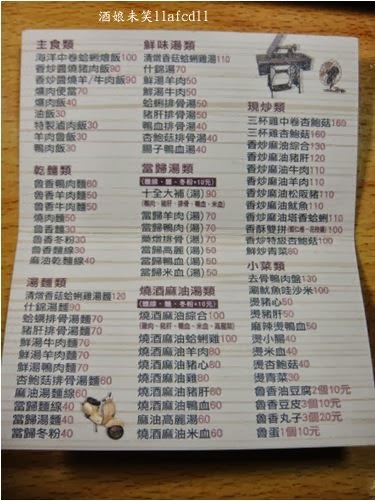 酒娘未笑11afcd11
主食類
海洋中卷蛤蜊燴飯100
香炒醬燒豬肉飯90
香炒醬燒羊/牛肉飯90
爌肉便當70
爌肉飯40
油飯30
特製滷肉飯30
羊肉魯飯30
鴨肉飯30
乾麵類
魯香鴨肉麵60
魯香羊肉麵50
魯香牛肉麵50
燒肉麵50
魯香麵30
魯香冬粉30
魯香麵線30
麻油乾麵線40
湯麵類
清燉香菇蛤蜊雞湯麵120
什錦湯麵90
蛤蠣排骨湯麵70
豬肝排骨湯麵70
鮮湯牛肉麵70
鮮湯羊肉麵70
鮮湯鴨肉麵70
杏鮑菇排骨湯麵60
麻油湯麵線60
當歸麵線40
當歸湯麵40
當歸冬粉40
鮮味湯類
清燉香菇蛤蜊雞湯110
什錦湯70
鮮湯羊肉50
鮮湯牛肉50
蛤蜊排骨湯50
豬肝排骨湯50
鴨血排骨湯40
杏鮑菇排骨湯40
腸子鴨血湯40
當歸湯類
(麵線、麵、冬粉+10元)
十全大補(湯)90
(鴨肉、豬肝、排骨、鴨血、米血)
當歸羊肉(湯)70
當歸鴨肉(湯)70
藥燉排骨(湯)70
當歸高麗(湯)50
當歸鴨血(湯)50
當歸米血(湯)50
燒酒麻油湯類
(麵線、麵、冬粉+10元)
燒酒麻油綜合100
(雞肉、豬肝、鴨血、米血、高麗菜)
燒酒麻油蛤蜊雞100
燒酒麻油羊肉80
燒酒麻油豬心80
燒酒麻油雞80
燒酒麻油豬肝60
燒酒麻油鴨血60
麻油高麗湯60
燒酒麻油米血60
現炒類
三杯雞中卷杏鮑菇160
三杯雞杏鮑菇160
香炒麻油綜合130
香炒麻油豬肝120
香炒麻油牛肉110
香炒麻油羊肉110
香炒麻油松阪豬110
香炒麻油魷魚110
香炒麻油塔香蛤蜊110
香酥雙拼100
香炒特級杏鮑菇100
鮮炒青菜60
小菜類
去骨鴨肉盤130
涮魷魚哇沙米100
燙豬心50
燙豬肝50
麻辣燙鴨血50
燙小腸40
燙米血40
燙杏鮑菇40
燙青菜30
魯香油豆腐2個10元
魯香豆皮3個10元
魯香丸子3個20元
魯蛋1個10元